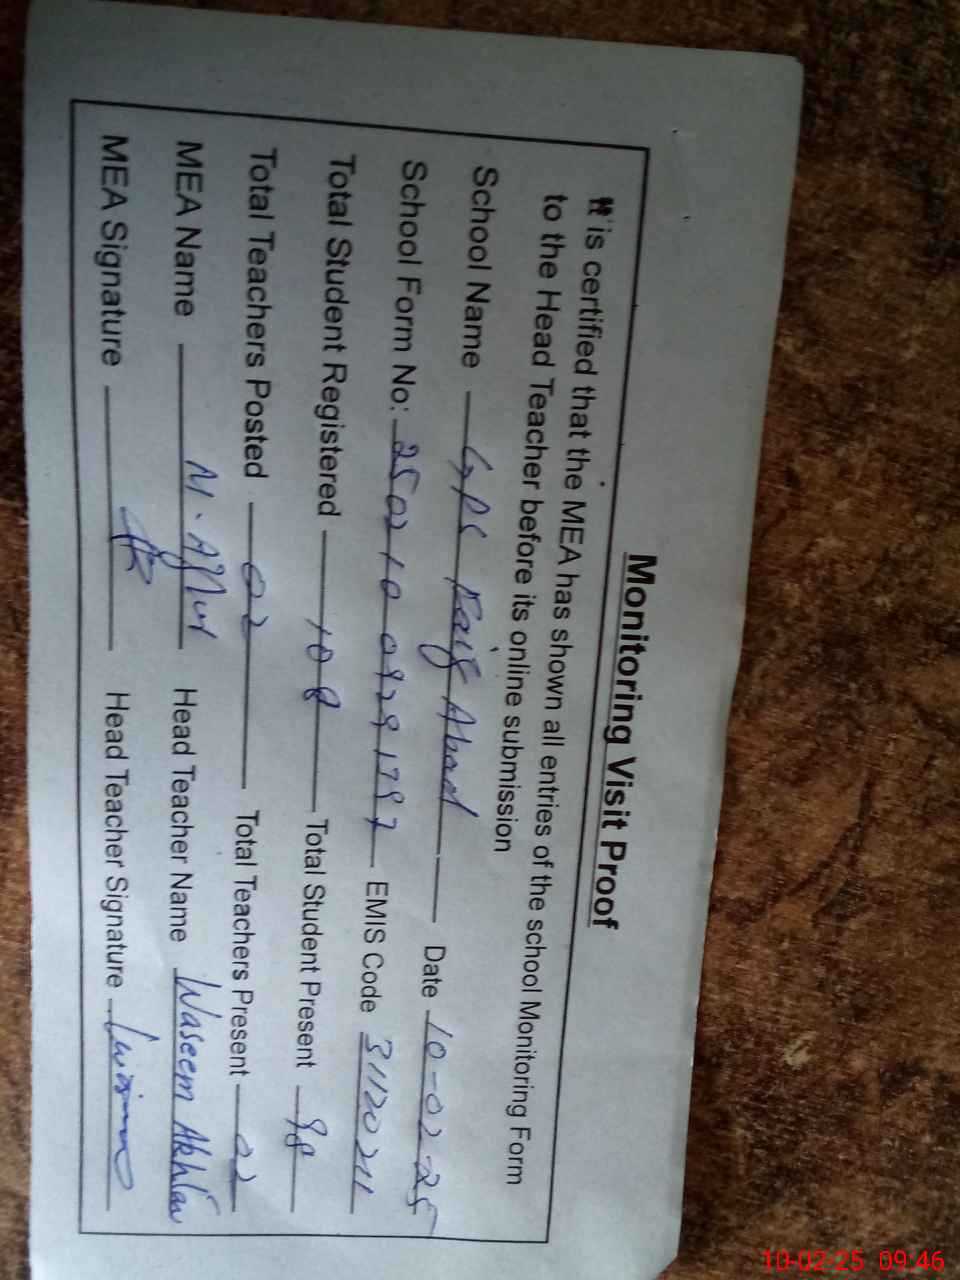 Monitoring Visit Proof
It is certified that the MEA has shown all entries of the school Monitoring Form
to the Head Teacher before its online submission
School Name GPS Faiz Abad Date 10-02-25
School Form No: 250210 0929 1797 EMIS Code 31120211
Total Student Registered 108 Total Student Present 98
Total Teachers Posted 02 Total Teachers Present 02
MEA Name M. Head Teacher Name Waseem Akhtar
MEA Signature Head Teacher Signature
10-02-25 09:46